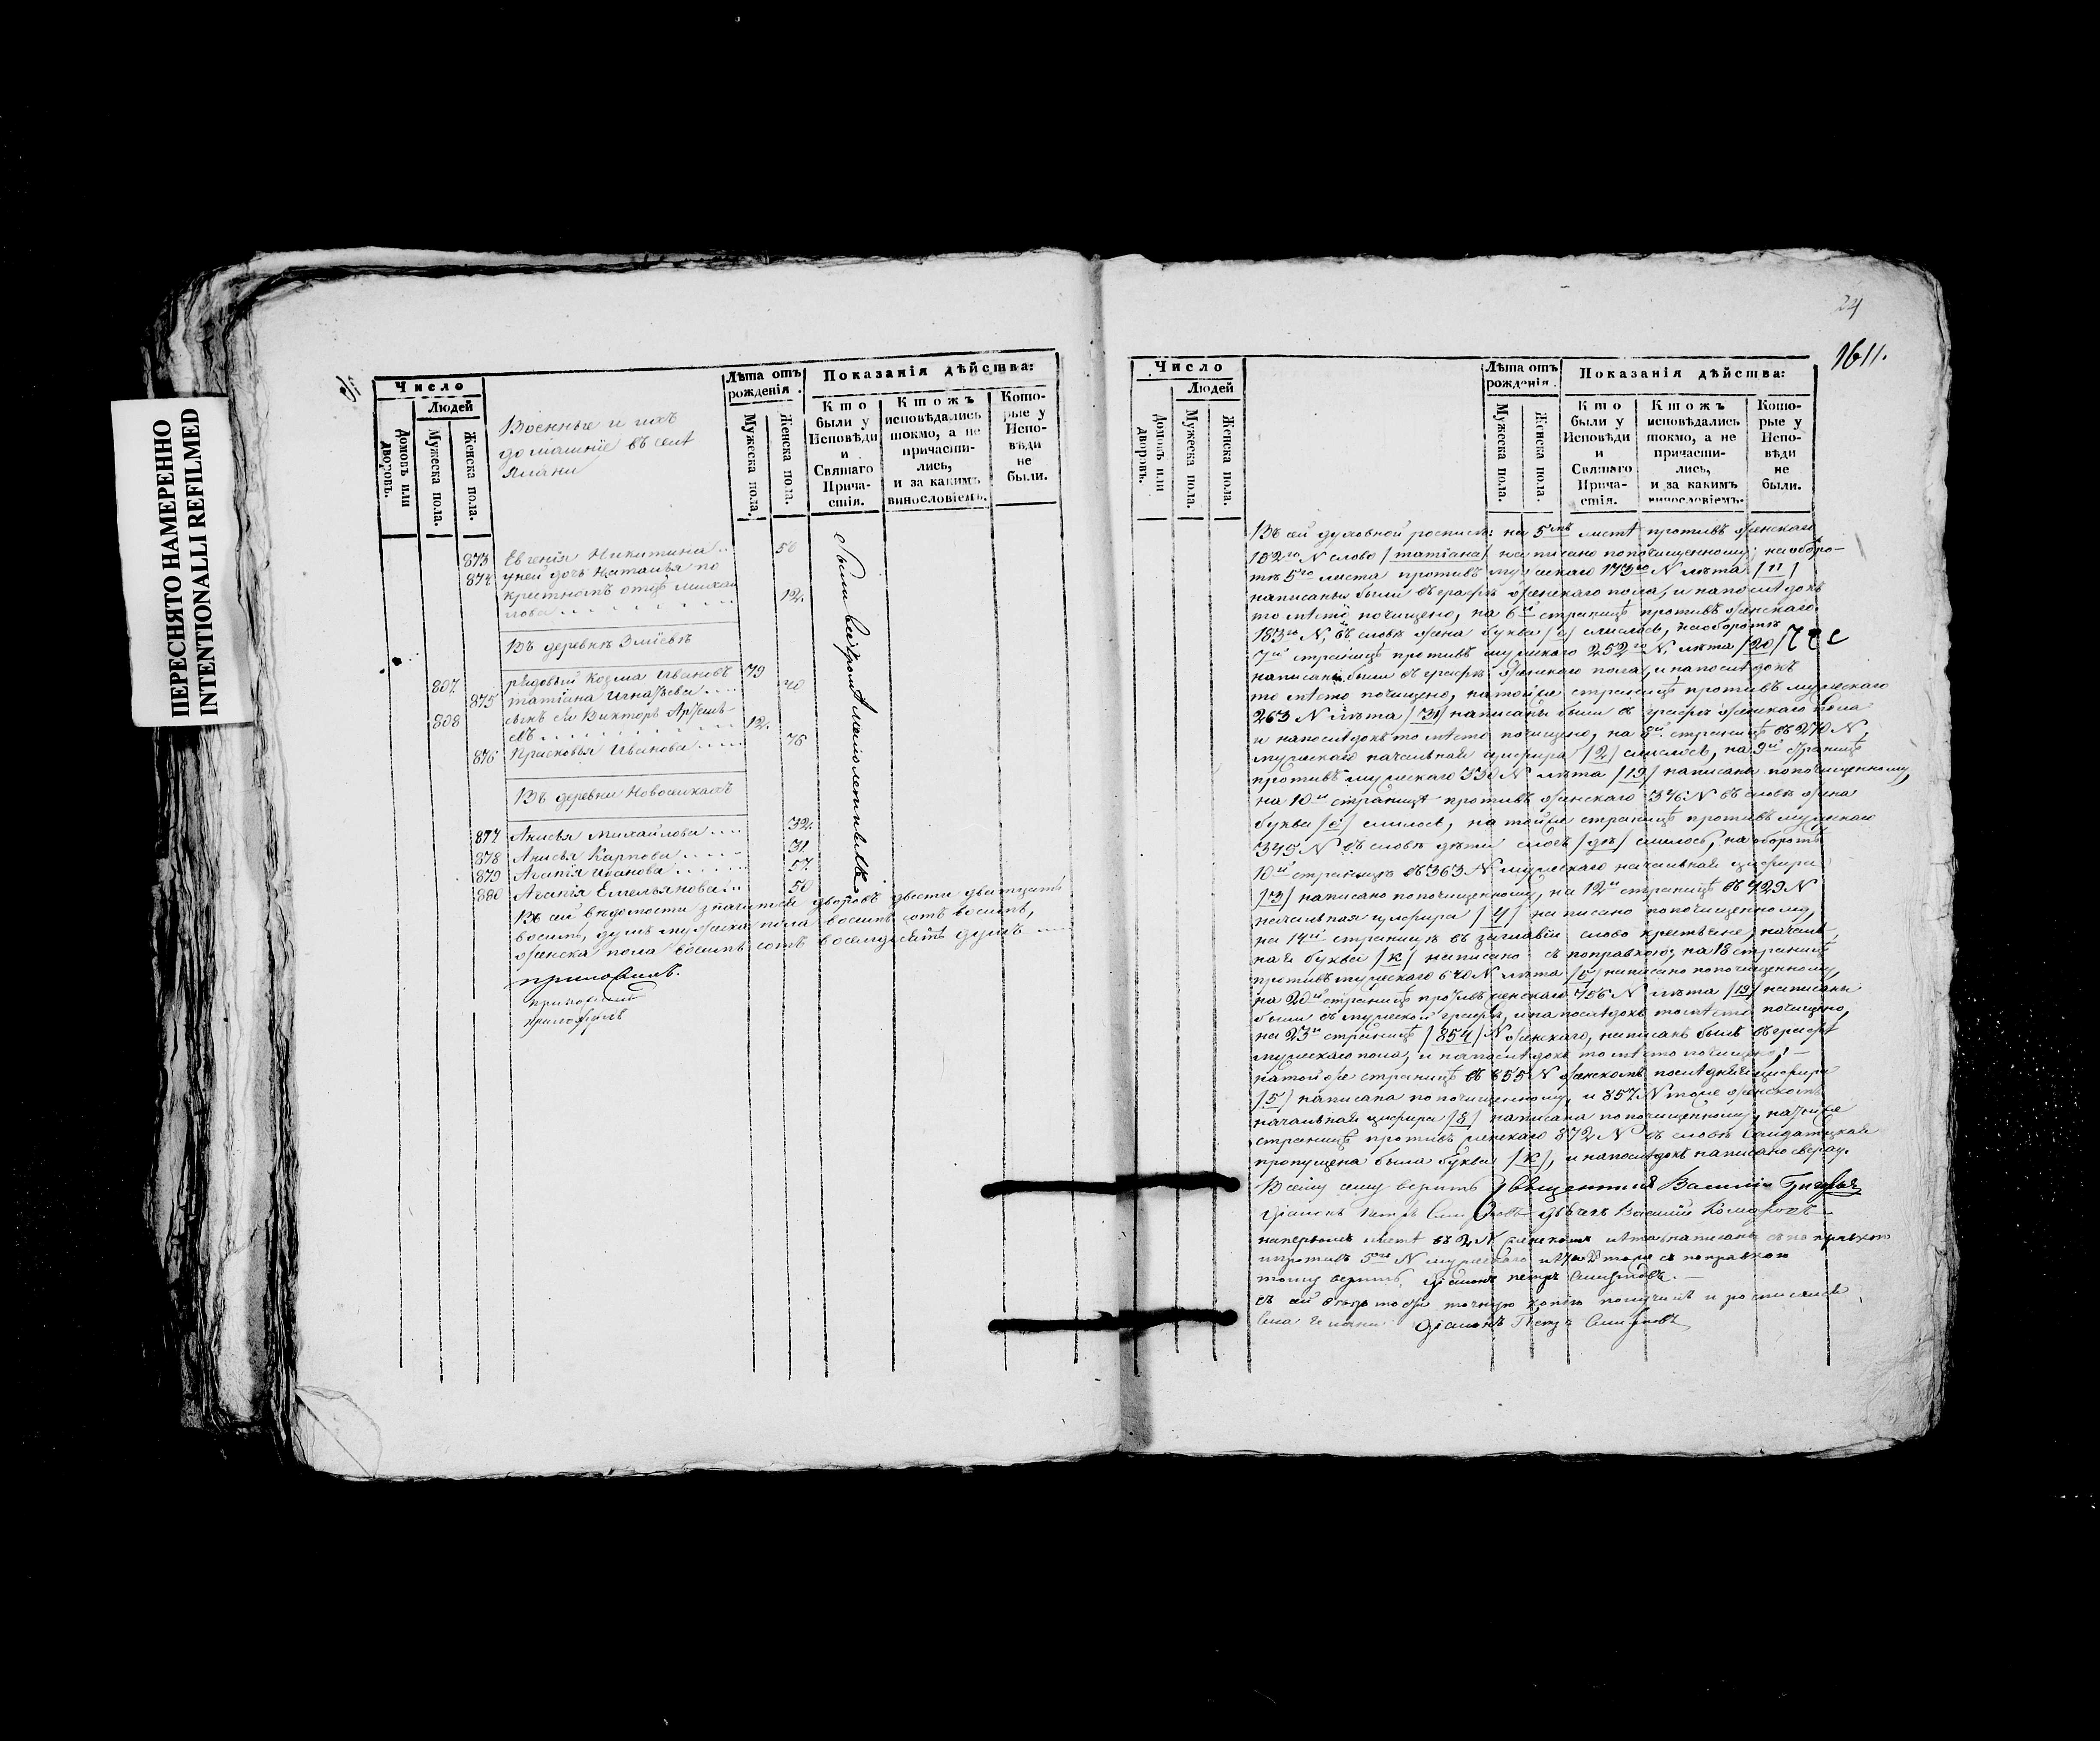 ПЕРЕСНЯТО НАМЕРЕННО
INTENTIONALLI REFILMED
Число
Людей
Домовъ или дворовъ.
Мужеска пола.
Женска пола.
Военные и ихъ
домашніе въ селѣ
Лѣта отъ рожденія.
Мужеска пола.
Женска пола.
Показанія дѣйства:
Кто были у Исповѣди и Святаго Прича-стія.
Ктожъ исповѣдались токмо, а не причасти-лись, и за какимъ винословіемъ.
Кото-рые у Испо-вѣди не были.
873 Евгенія Никитина 50
874 у ней дочь Наталья по
крестномъ отцѣ Михаи
лова 12.
Въ деревнѣ Зміевкѣ
807. рядовый Козма Ивановъ 79
875 Татіана Игнатьева 70
808 сынъ ея Викторъ Артемь-
евъ 12.
876 Прасковья Иванова 76
Въ деревни Новоселкахъ
877 Анисья Михайлова 32.
878 Анисья Карпова 31.
879 Агапія Иванова 57.
880 Агапія Емельянова 50
Въ сей вѣдомости значится дворовъ двести дватцать
восемь, душъ мужеска пола восемь сотъ восемь,
женска пола восемь сотъ восемдесятъ душъ
24
1611.
Число
Людей
Домовъ или дворовъ.
Мужеска пола.
Женска пола.
Лѣта отъ рожденія.
Мужеска пола.
Женска пола.
Показанія дѣйства:
Кто были у Исповѣди и Святаго Прича-стія.
Ктожъ исповѣдались токмо, а не причасти-лись, и за какимъ винословіемъ.
Кото-рые у Испо-вѣди не были.
Въ сей духовной росписи: на 5мъ листѣ противъ женскаго
182го N слово /Татіана/ написано по почищенному; на оборо-
тѣ 5го листа противъ мужескаго 173го N лѣта /11/
написаны были въ графѣ женскаго пола, и на послѣдокъ
то мѣсто почищено, на 6й страницѣ противъ женскаго
183го N, въ словѣ жена буква слилось, на оборотѣ
7й страницѣ противъ мужескаго 252го N. лѣта /20/
написаны были въ графѣ женскаго пола, и на послѣдокъ
то мѣсто почищено, на той же страницѣ противъ мужескаго
263 N лѣта /31/ написаны были въ графѣ женскаго пола
и на послѣдокъ то мѣсто почищено, на 8й страницѣ въ 270 N,
мужескаго начальная цыфира /2/ слилось, на 9й страницѣ
противъ мужескаго 330 N лѣта /19/ написаны по почищенному,
на 10й страницѣ противъ женскаго 346 N въ словѣ жена
буква /е/ слилось, на той же страницѣ противъ мужескаго
349 N въ словѣ дѣти слогъ /дѣ/ слилось, на оборотѣ
10й страницѣ въ 363 N мужескаго начальная цыфира
/3/ написано по почищенному, на 12й страницѣ въ 429 N
начальная цыфира /4/ написано по почищенному,
на 14й страницѣ въ заглавіи слово крестьяне, началь-
ная буква /к/ написано съ поправкою, на 18 страницѣ
противъ мужескаго 640 N лѣта написано по почищенному,
на 20й страницѣ противъ женскаго 756 N лѣта /19/ написаны
были въ мужеской графѣ, и на послѣдокъ то мѣсто почищено,
на 23й страницѣ /854/ N женскаго, написанъ былъ въ графѣ
мужескаго пола, и на послѣдокъ то мѣсто почищено,
на той же страницѣ въ 855 N женскомъ послѣдняя цыфира
/5/ написана по почищенному, и 857 N тоже женскомъ
начальная цыфира /8/ написана по почищенному, на
страницѣ противъ женскаго 872 N въ словѣ Салдатцкая
пропущена была буква /к/, и на послѣдокъ написано сверху.
Всему сему верить Священникъ Василій
Діаконъ Петръ Смирновъ Дьячекъ Василій
на первомъ листѣ въ 2 N женскомъ лѣта написаны съ поправкою
и противъ 5го N мужескаго тоже съ поправкою
тому верить, Діаконъ Петръ Смирновъ.
точную копію получилъ и росписался
Діаконъ Петръ Смирновъ